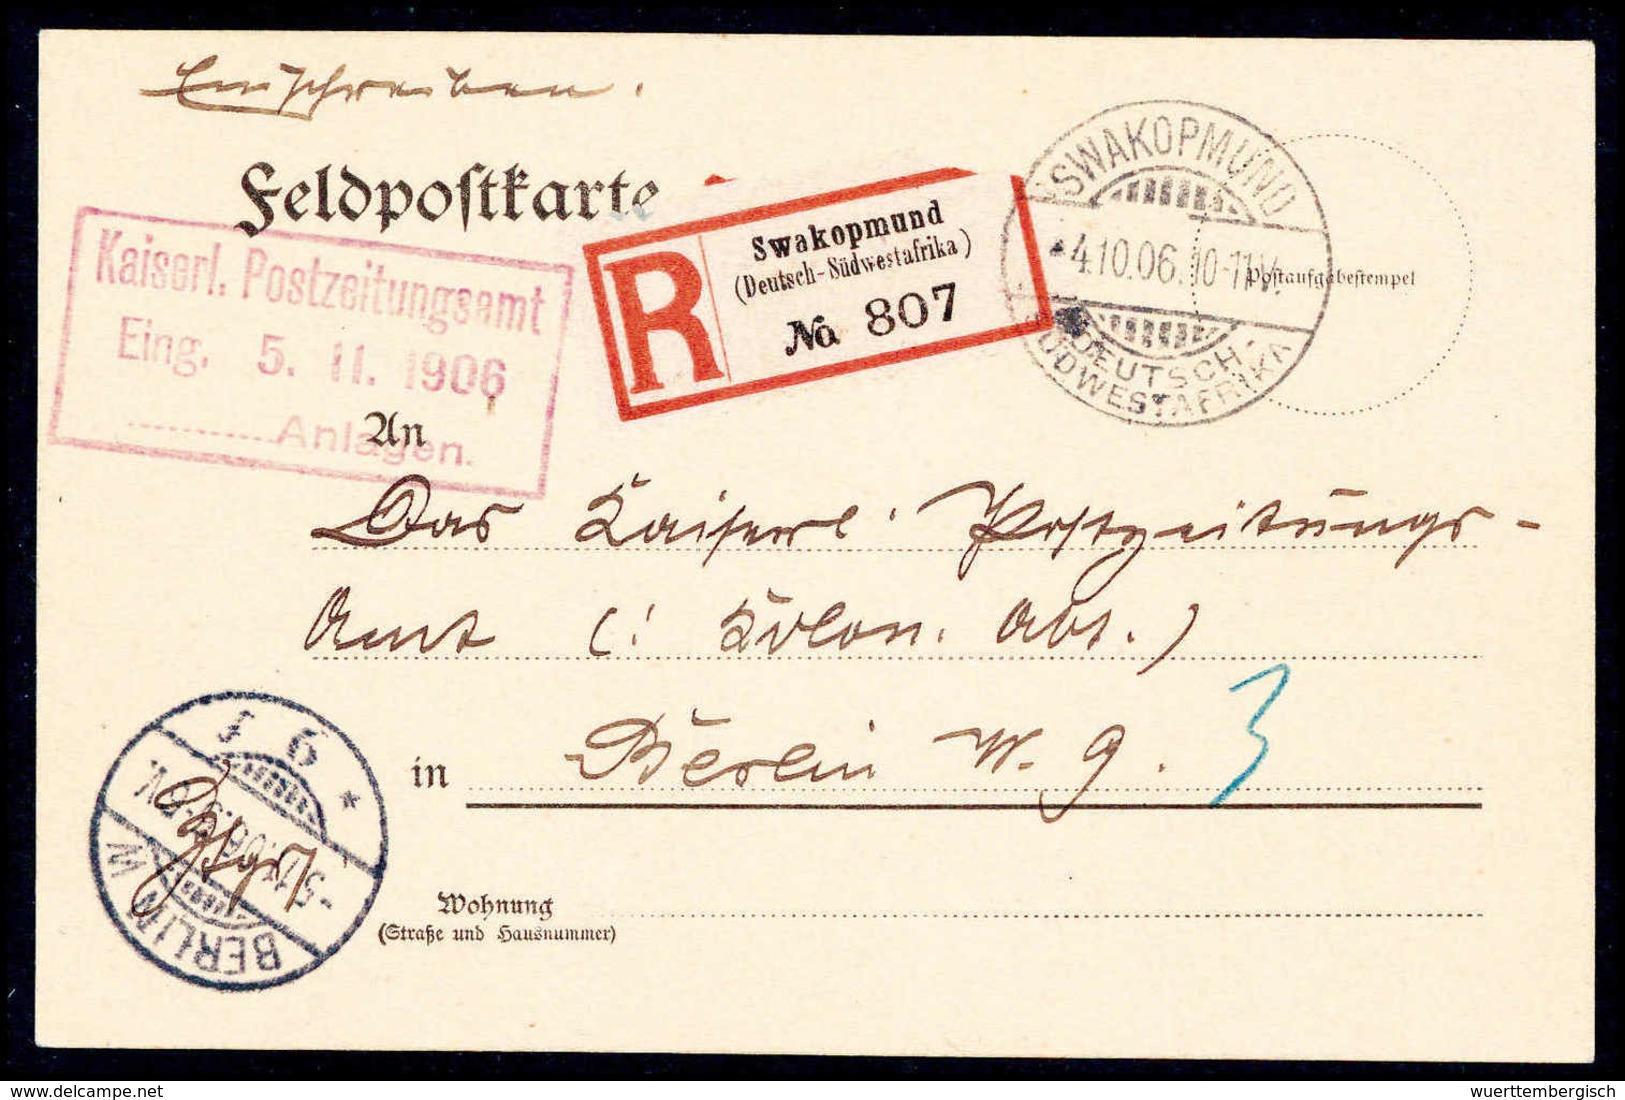 Einschreiben.
Feldpostkarte
Kaiserl. Postzeitungsamt
Eing. 5. 11. 1906
Anlagen.
R
Swakopmund
(Deutsch-Südwestafrika)
No 807
SWAKOPMUND
4.10.06. 10-11V.
DEUTSCH-
SÜDWESTAFRIKA
Postaufgabestempel
An
Das Kaiserl. Postzeitungs-
Amt (: Kolon. Abt.)
in Berlin W. 9.
3
BERLIN W
Wohnung
(Straße und Hausnummer)
www.delcampe.net
wuerttembergisch